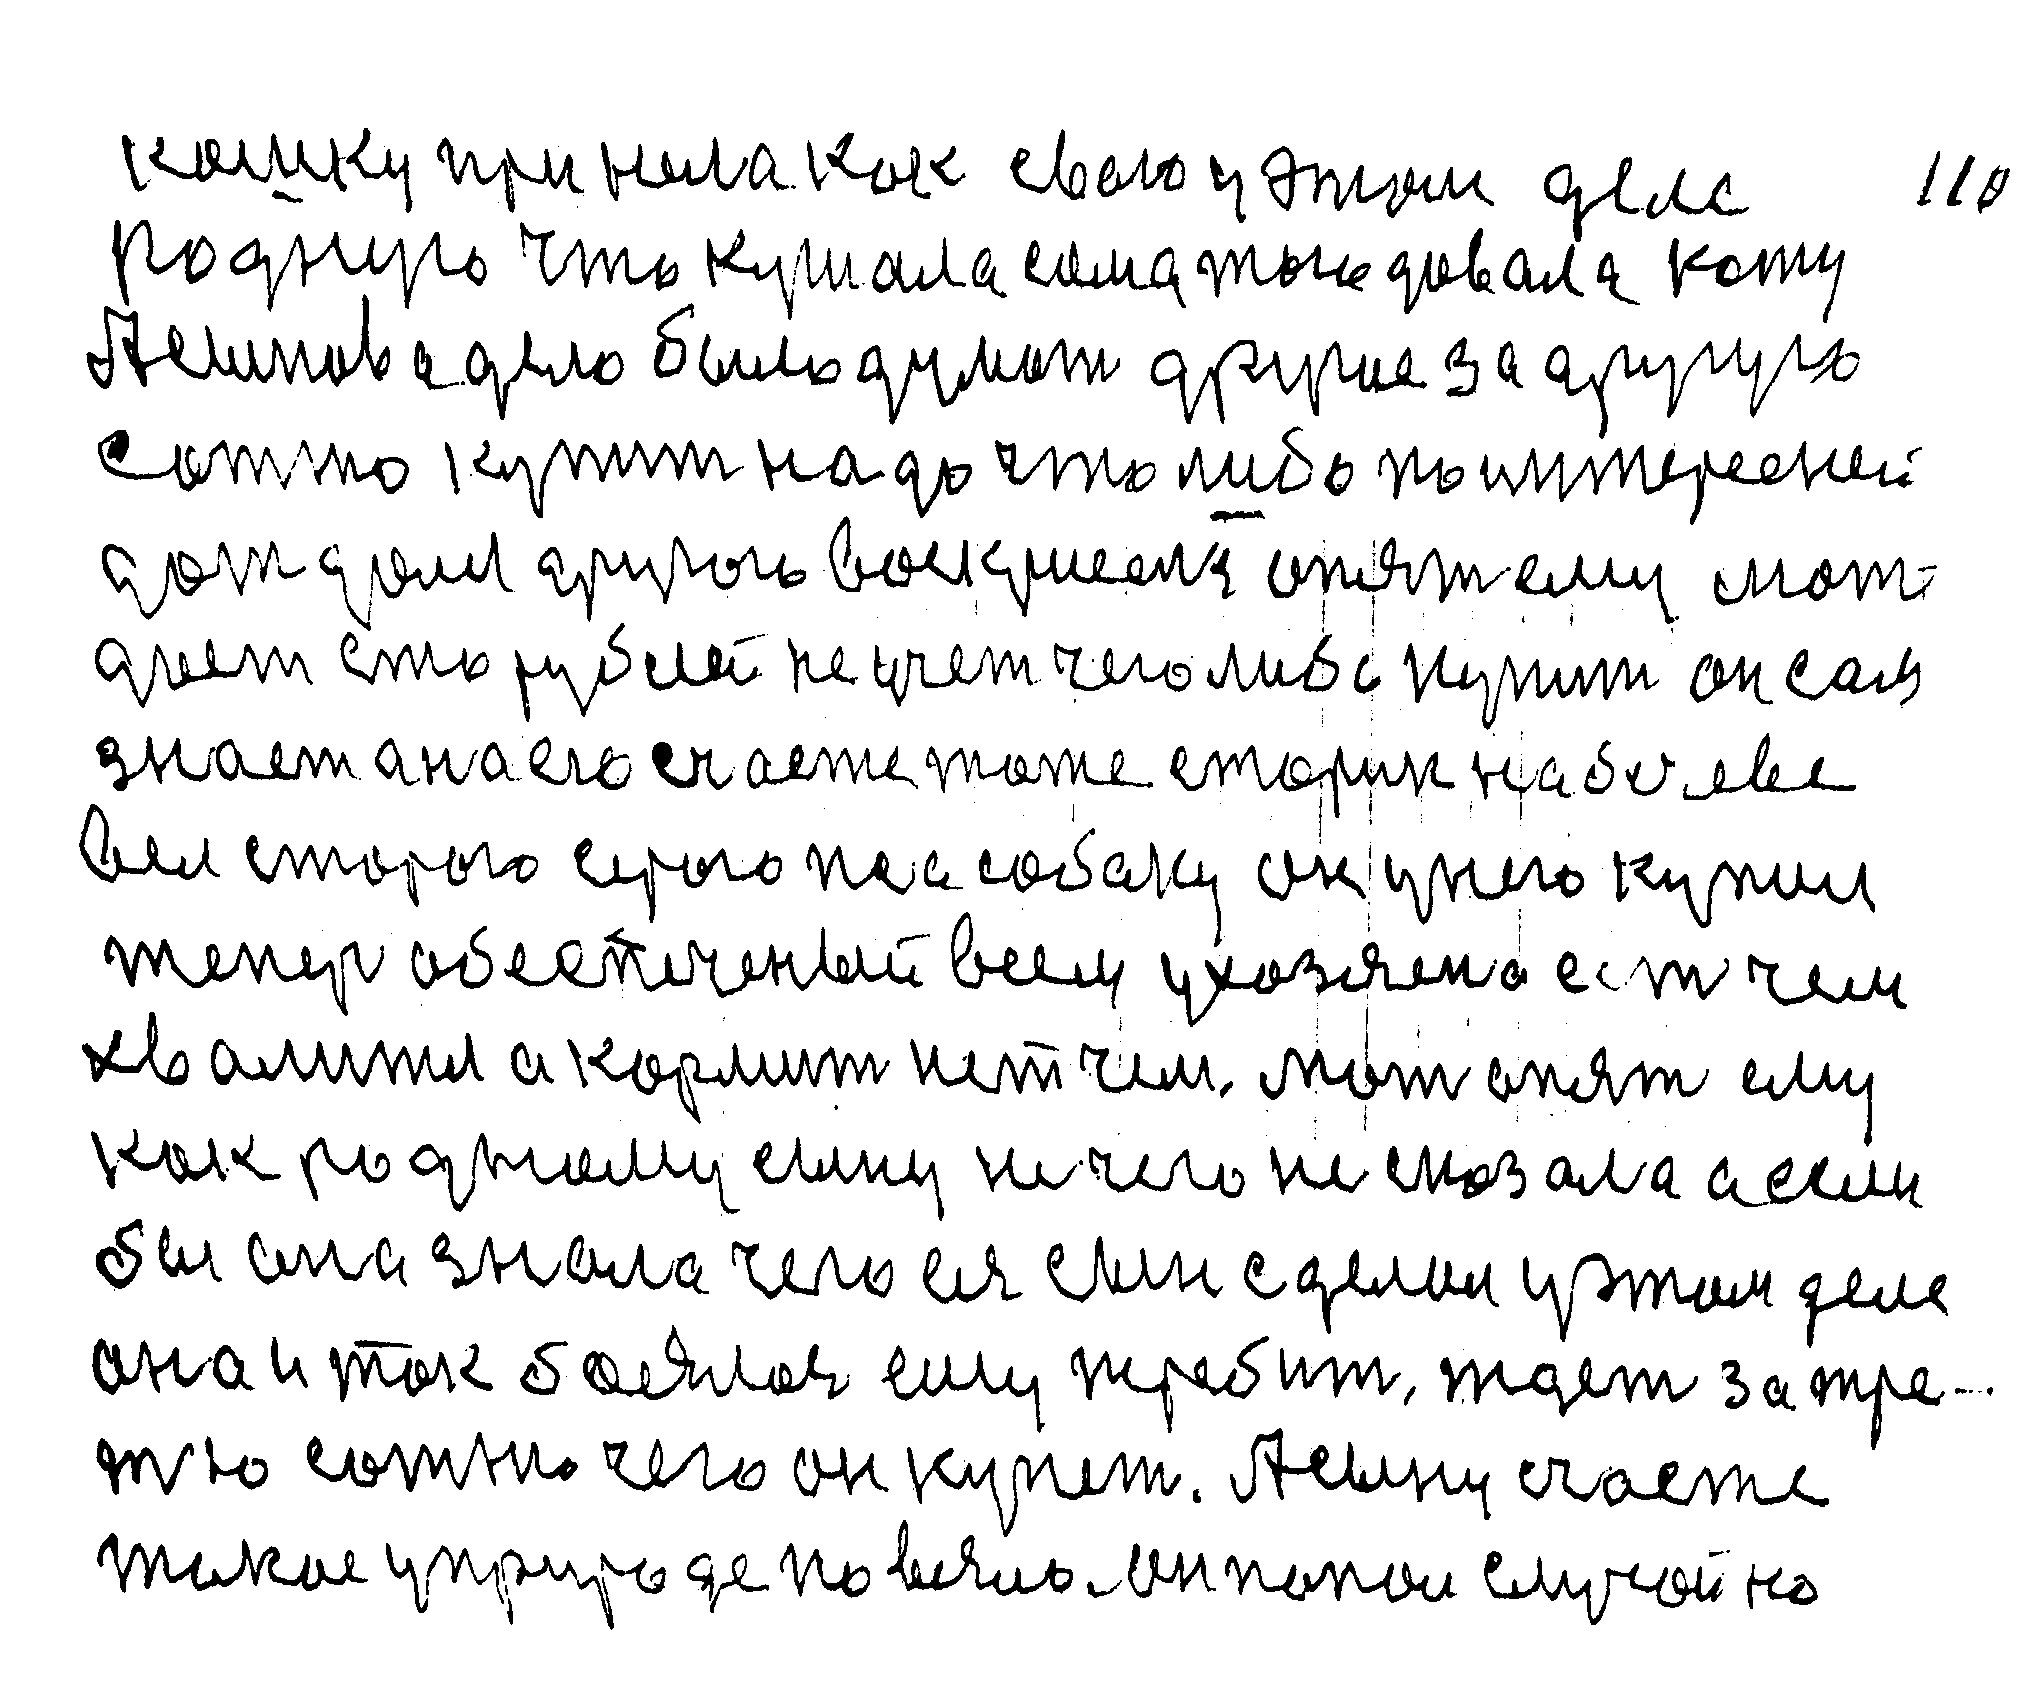 кошку приняла как свою у этом деле 110
родную что кушала сама тое довала коту
А сынова дело было думат другие за другую
сотню купит надо что либо поинтересней
дождал другого воскресеня опят ему мат
дает сто рублей не учет чего либо купит он сам
знает а на его счасте тоже старик на базаре
вел старого серого пса собаку он у него купил
тепер обеспеченый всем у хозяена ест чем
хвалится а кормит нет чем. мат опят ему
как родному сыну не чего не сказала а если
бы она знала чего ея сын сделал у этом деле
она и так боялас ему требит, ждет за тре-
тю сотню чего он купет. А сыну счасте
такое у природе повезло. он попал случайно